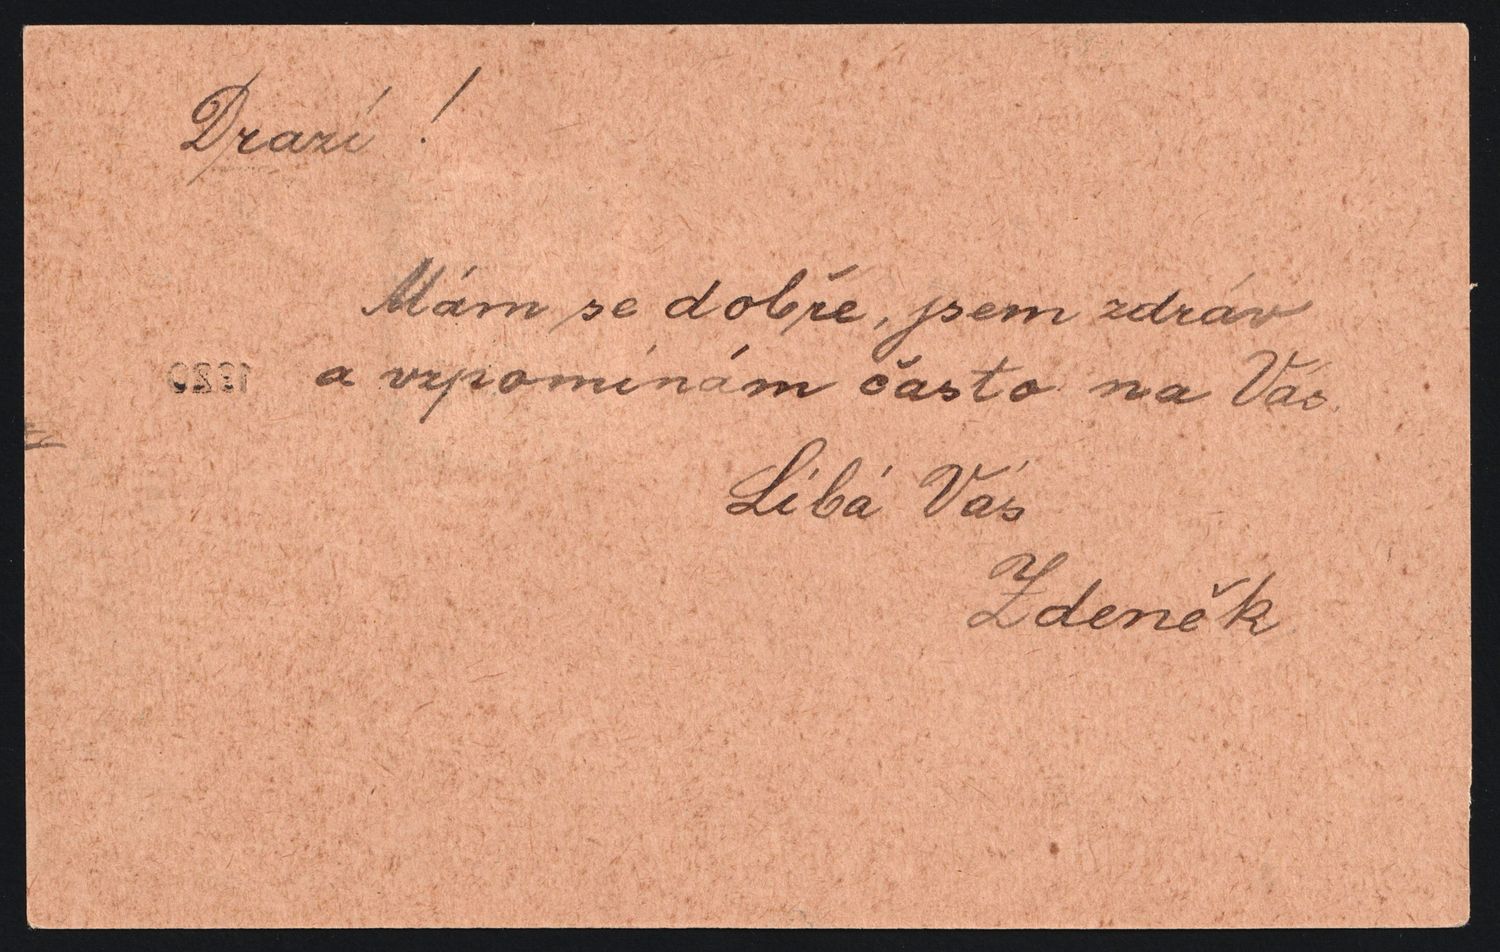 Drazí !
Mám se dobře, jsem zdráv
a vzpomínám často na Vás.
Líbá Vás
Zdeněk